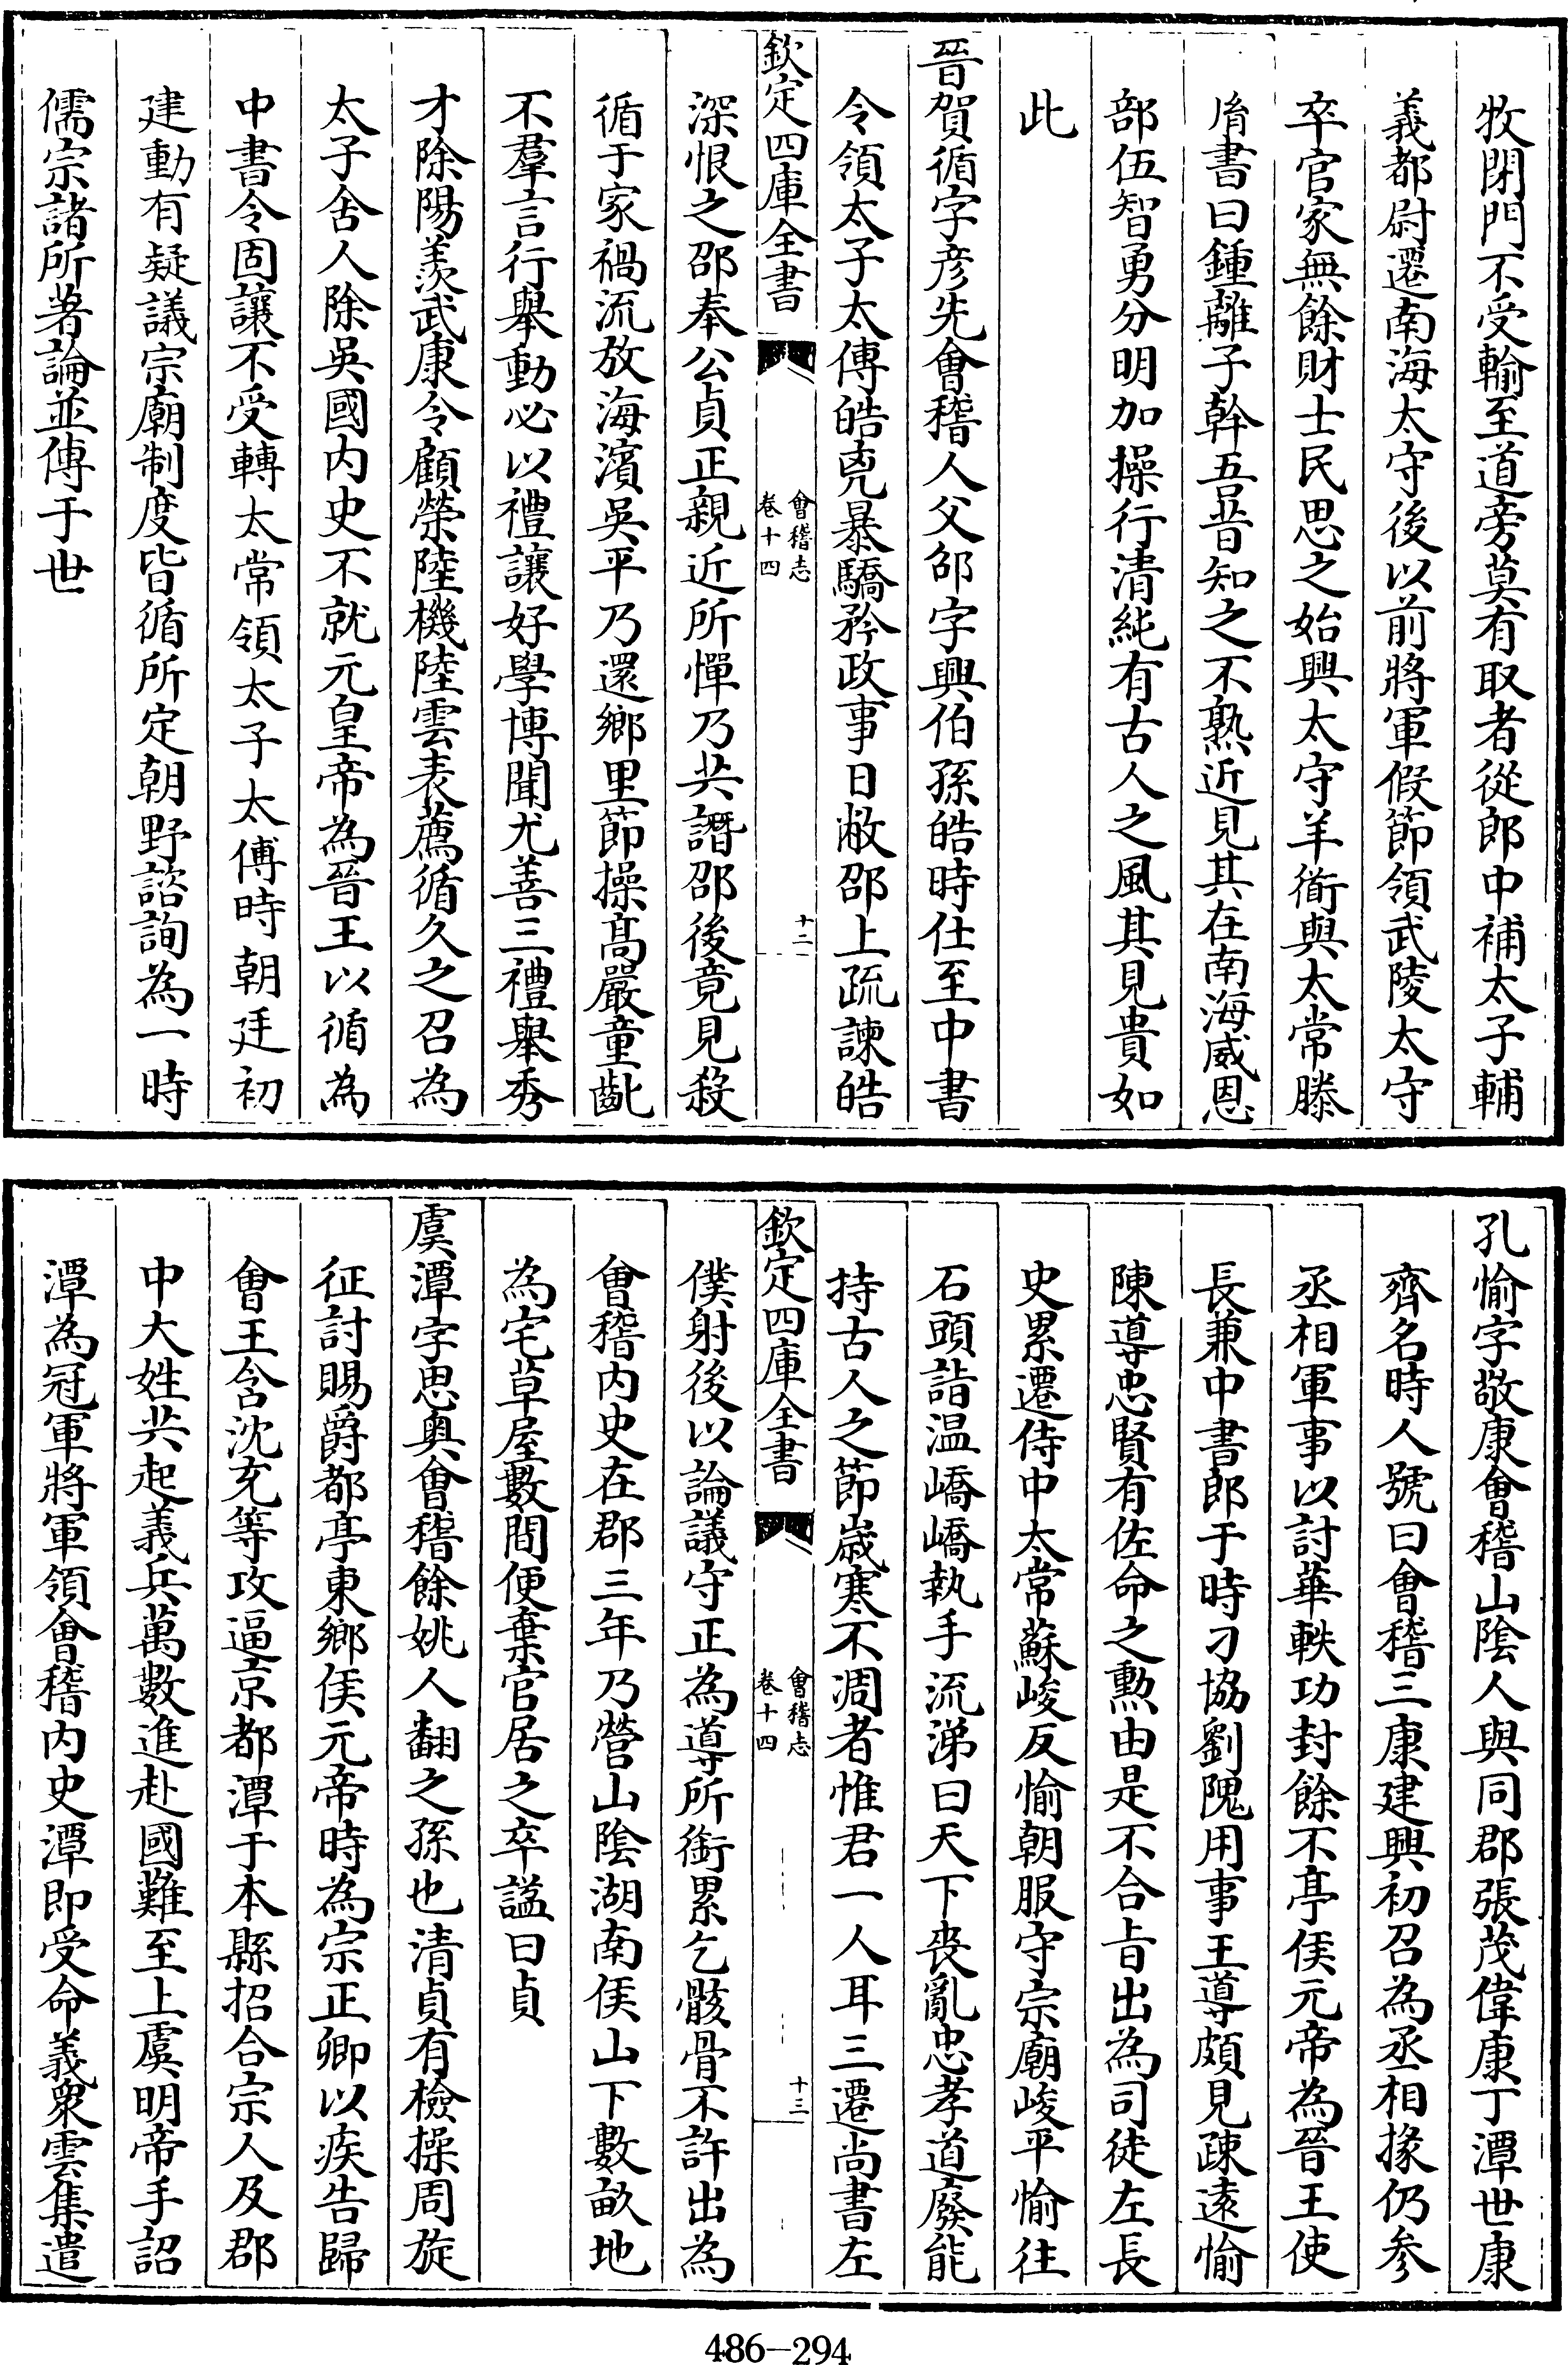 牧閉門不受輸至道旁莫有取者從郎中補太子輔
義都尉遷南海太守後以前將軍假節領武陵太守
卒官家無餘財士民思之始興太守羊衜與太常滕
𦙍書曰鍾離子幹吾昔知之不熟近見其在南海威恩
部伍智勇分明加操行清純有古人之風其見貴如
此
晉賀循字彦先會稽人父邵字興伯孫皓時仕至中書
令領太子太傅皓兇暴驕矜政事日敝邵上疏諫皓
欽定四庫全書
會稽志
卷十四
十二
深恨之邵奉公貞正親近所憚乃共譖邵後竟見殺
循于家禍流放海濱吳平乃還鄉里節操髙嚴童齓
不羣言行舉動必以禮讓好學博聞尤善三禮舉秀
才除陽羨武康令顧榮陸機陸雲表薦循久之召為
太子舍人除吳國内史不就元皇帝為晉王以循為
中書令固讓不受轉太常領太子太傅時朝廷初
建動有疑議宗廟制度皆循所定朝野諮詢為一時
儒宗諸所著論並傳于世
孔愉字敬康會稽山隂人與同郡張茂偉康丁潭世康
齊名時人號曰會稽三康建興初召為丞相掾仍参
丞相軍事以討華軼功封餘不亭侯元帝為晉王使
長兼中書郎于時刁協劉隗用事王導頗見疎逺愉
陳導忠賢有佐命之勲由是不合㫖出為司徒左長
史累遷侍中太常蘇峻反愉朝服守宗廟峻平愉往
石頭詣温嶠嶠執手流涕曰天下喪亂忠孝道廢能
持古人之節嵗寒不凋者惟君一人耳三遷尚書左
欽定四庫全書
會稽志
卷十四
十三
僕射後以論議守正為導所銜累乞骸骨不許出為
會稽内史在郡三年乃營山隂湖南侯山下數畝地
為宅草屋數間便棄官居之卒謚曰貞
虞潭字思奥會稽餘姚人翻之孫也清貞有檢操周旋
征討賜爵都亭東鄉侯元帝時為宗正卿以疾告歸
會王含沈充等攻逼京都潭于本縣招合宗人及郡
中大姓共起義兵萬數進赴國難至上虞明帝手詔
潭為冠軍將軍領會稽内史潭即受命義衆雲集遣
486-294